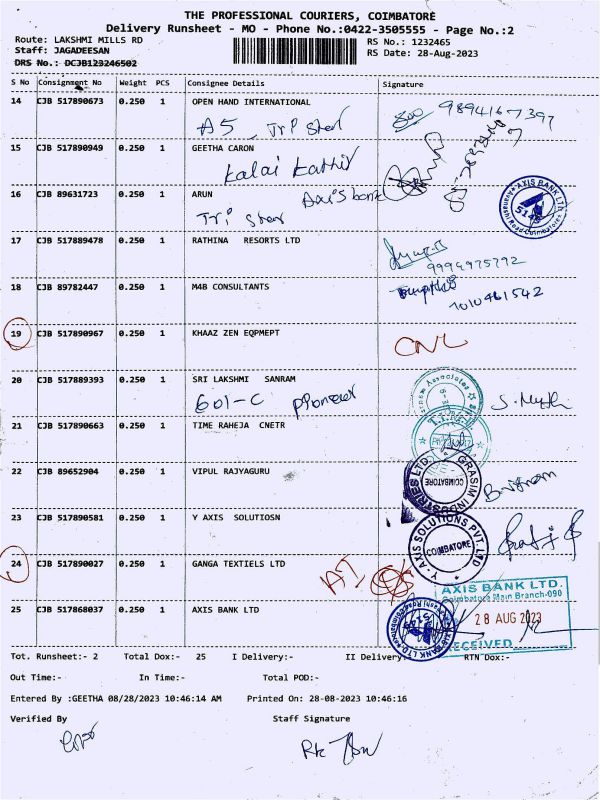 THE PROFESSIONAL COURIERS, COIMBATORE
Delivery Runsheet - MO - Phone No.:0422-3505555 - Page No.:2
Route: LAKSHMI MILLS RD
RS No.: 1232465
Staff: JAGADEESAN
RS Date: 28-Aug-2023
DRS No.: DCJB123246502
S No Consignment No Weight PCS Consignee Details Signature
14 CJB 517890673 0.250 1 OPEN HAND INTERNATIONAL
A5 Tri Star
9894167397
15 CJB 517890949 0.250 1 GEETHA CARON
Kalai Kathir
16 CJB 89631723 0.250 1 ARUN
Axis bank
Tri Star
AXIS BANK LTD.
17 CJB 517889478 0.250 1 RATHINA RESORTS LTD
9994975792
18 CJB 89782447 0.250 1 M4B CONSULTANTS
7010461542
19 CJB 517890967 0.250 1 KHAAZ ZEN EQPMEPT
CNL
20 CJB 517889393 0.250 1 SRI LAKSHMI SANRAM
601-C Pioneer
21 CJB 517890663 0.250 1 TIME RAHEJA CNETR
22 CJB 89652904 0.250 1 VIPUL RAJYAGURU
GRASIM INDUSTRIES LTD.
COIMBATORE
23 CJB 517890581 0.250 1 Y AXIS SOLUTIOSN
Y - AXIS SOLUTIONS PVT. LTD
COIMBATORE
24 CJB 517890027 0.250 1 GANGA TEXTIELS LTD
25 CJB 517868037 0.250 1 AXIS BANK LTD
AXIS BANK LTD.
Coimbatore Main Branch-090
28 AUG 2023
RECEIVED
Tot. Runsheet:- 2 Total Dox:- 25 I Delivery:- II Delivery: RTN Dox:-
Out Time:- In Time:- Total POD:-
Entered By :GEETHA 08/28/2023 10:46:14 AM Printed On: 28-08-2023 10:46:16
Verified By Staff Signature